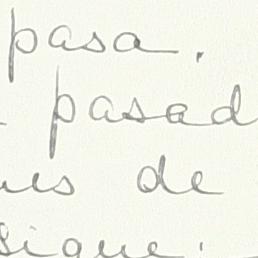 pasa.
pasad
de
sigue.